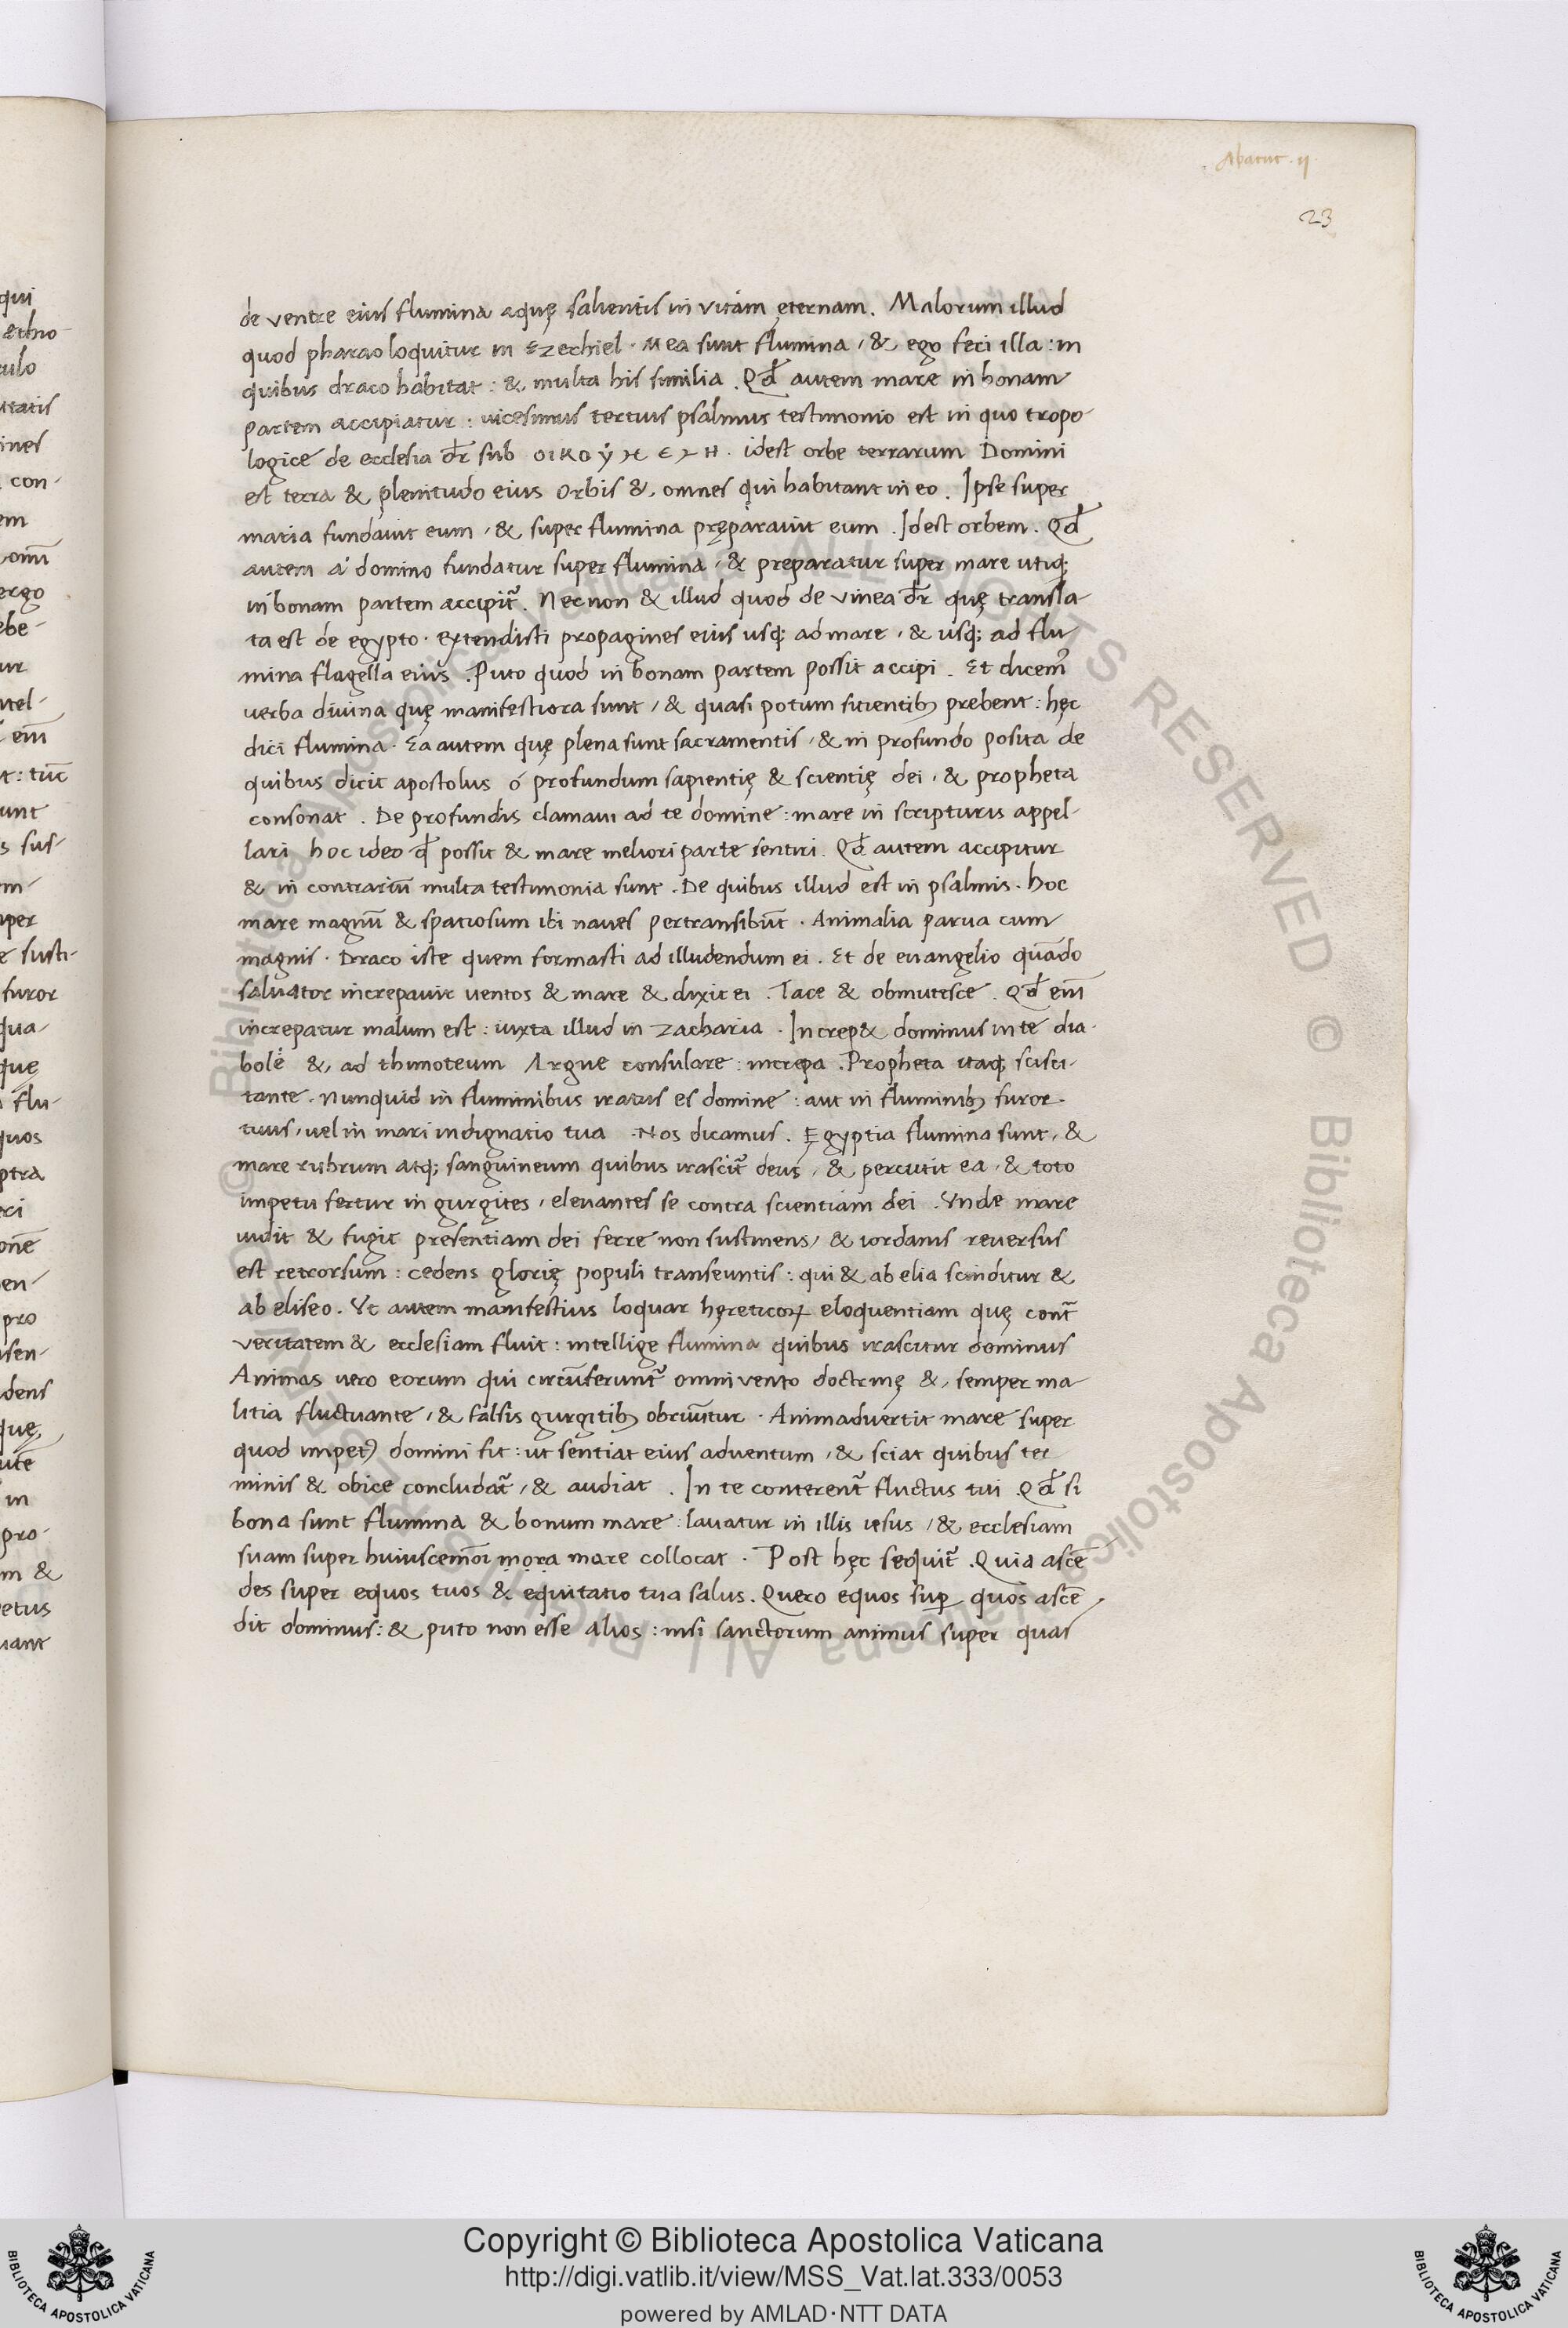 Abacuc · ij
23
de ventre eius flumina aquę salientis in vitam ęternam. Malorum illud
quod pharao loquitur in Ezechiel · Mea sunt flumina, & ego feci illa: in
quibus draco habitat: & multa his similia. Qđ autem mare in bonam
partem accipiatur: uicesimus tertius psalmus testimonio est in quo tropo-
logice de ecclesia dr̄ sub οικου idest orbe terrarum Domini
est terra & plenitudo eius Orbis & omnes qui habitant in eo. Ipse super
maria fundauit eum, & super flumina pręparauit eum. Idest orbem. Qđ
autem a domino fundatur super flumina, & preparatur super mare utiq;
in bonam partem accipit̃. Nec non & illud quod de vinea dr̄ quę transla-
ta est de egypto · extendisti propagines eius usq; ad mare, & usq; ad flu-
mina flagella eius. Puto quod in bonam partem possit accipi. Et dicem᷒
uerba diuina quę manifestiora sunt, & quasi potum sicientibꝫ prebent: hęc
dici flumina. Ea autem quę plena sunt sacramentis, & in profundo posita de
quibus dicit apostolus ó profundum sapientię & scientię dei, & propheta
consonat. De profundis clamaui ad te domine: mare in scripturis appel-
lari hoc ideo ꝗđ possit & mare meliori parte sentiri. Qđ autem accipitur
& in contrariū multa testimonia sunt. De quibus illud est in psalmis. hoc
mare magnū & spatiosum ibi naues pertransibūt. Animalia parua cum
magnis. Draco iste quem formasti ad illudendum ei. Et de euangelio quādo
saluator increpauit uentos & mare & dixit ei. Tace & obmutesce. Qđ eīm
increpatur malum est: iuxta illud in zacharia. Increp& dominus in te dia-
bole & ad thimoteum Argue consulare: increpa. Propheta itaq; scisci-
tante. Nunquid in fluminibus iratus es domine: aut in fluminibꝫ furor
tuus, uel in mari indignatio tua. Nos dicamus. Egyptia flumina sunt, &
mare rubrum atq; sanguineum quibus irascit̃ deus, & percutit ea, & toto
impetu fertur in gurgites, eleuantes se contra scientiam dei. Vnde mare
uidit & fugit presentiam dei ferre non sustinens, & iordanis reuersus
est retrorsum: cedens glorię populi transeuntis: qui & ab elia scinditur &
ab eliseo. Vt autem manifestius loquar hęreticoꝝ eloquentiam quę cont̃
veritatem & ecclesiam fluit: intellige flumina quibus irascitur dominus
Animas uero eorum qui circūferunt̃ omni vento doctrinę & semper ma
litia fluctuante, & falsis gurgitibꝫ obruūtur. Animaduertit mare super
quod impet᷒ domini sit: ut sentiat eius aduentum, & sciat quibus ter
minis & obice concludat̃, & audiat. In te conterent̃ fluctus tui Qđ si
bona sunt flumina & bonum mare: lauatur in illis iesus, & ecclesiam
suam super huiuscemōi mora mare collocat. Post hęc sequit̃. Quia ascē
des super equos tuos & equitatio tua salus. Quero equos suꝑ quos ascē
dit dominus: & puto non esse alios: nisi sanctorum animus super quas
qui
culo
con-
em
ergo
ur
unt
s sus-
furor
qua-
que
flu-
quos
pro
dens
in
pro-
m &
etus
Copyright © Biblioteca Apostolica Vaticana
http://digi.vatlib.it/view/MSS_Vat.lat.333/0053
powered by AMLAD·NTT DATA
BIBLIOTECA APOSTOLICA VATICANA
BIBLIOTECA APOSTOLICA VATICANA
© Biblioteca Apostolica Vaticana ALL RIGHTS RESERVED © Biblioteca Apostolica Vaticana ALL RIGHTS RESERVED